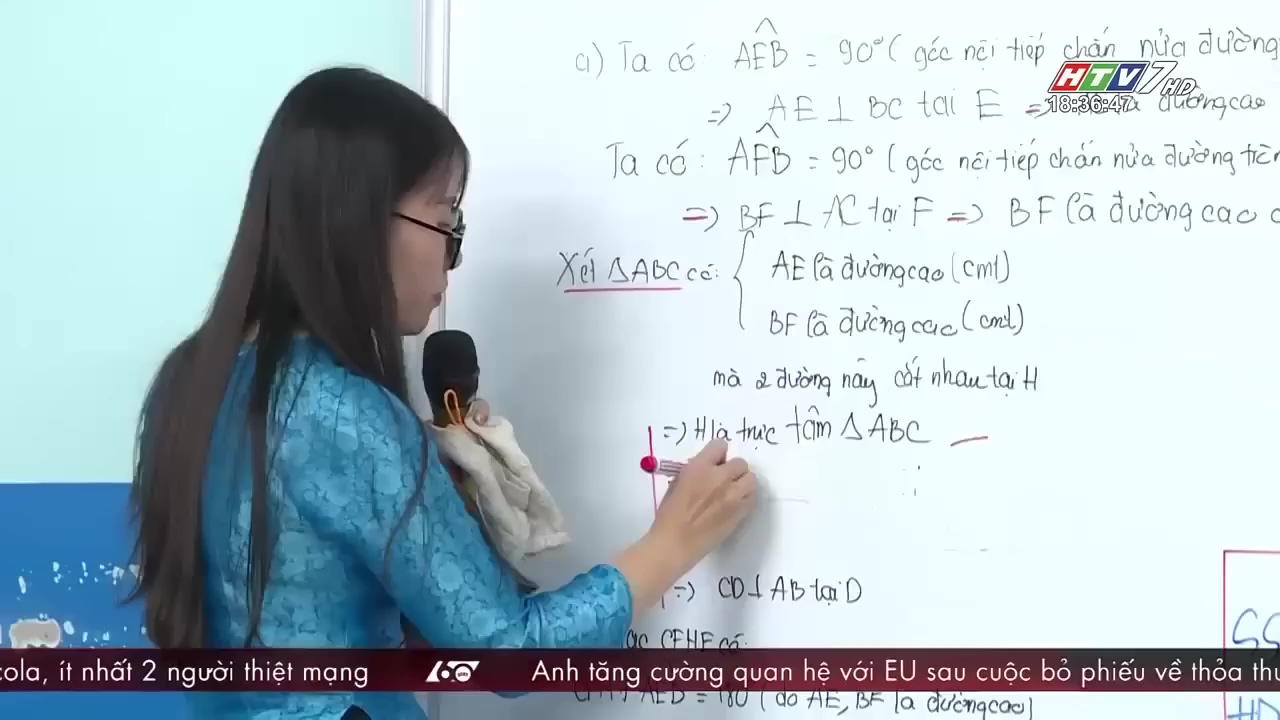 a) Ta có: AEB = 90° ( góc nội tiếp chắn nửa đường
=> AE ⊥ BC tại E => đường cao
HTV7 HD
18:36:47
Ta có: AFB = 90° ( góc nội tiếp chắn nửa đường tròn
=> BF ⊥ AC tại F => BF là đường cao
Xét ΔABC có:
AE là đường cao (cmt)
BF là đường cao (cmt)
mà 2 đường này cắt nhau tại H
=> H là trực tâm ΔABC
=> CD ⊥ AB tại D
CEHF có:
AEB = 180 ( do AE, BF là đường cao)
cola, ít nhất 2 người thiệt mạng
60 giây
Anh tăng cường quan hệ với EU sau cuộc bỏ phiếu về thỏa